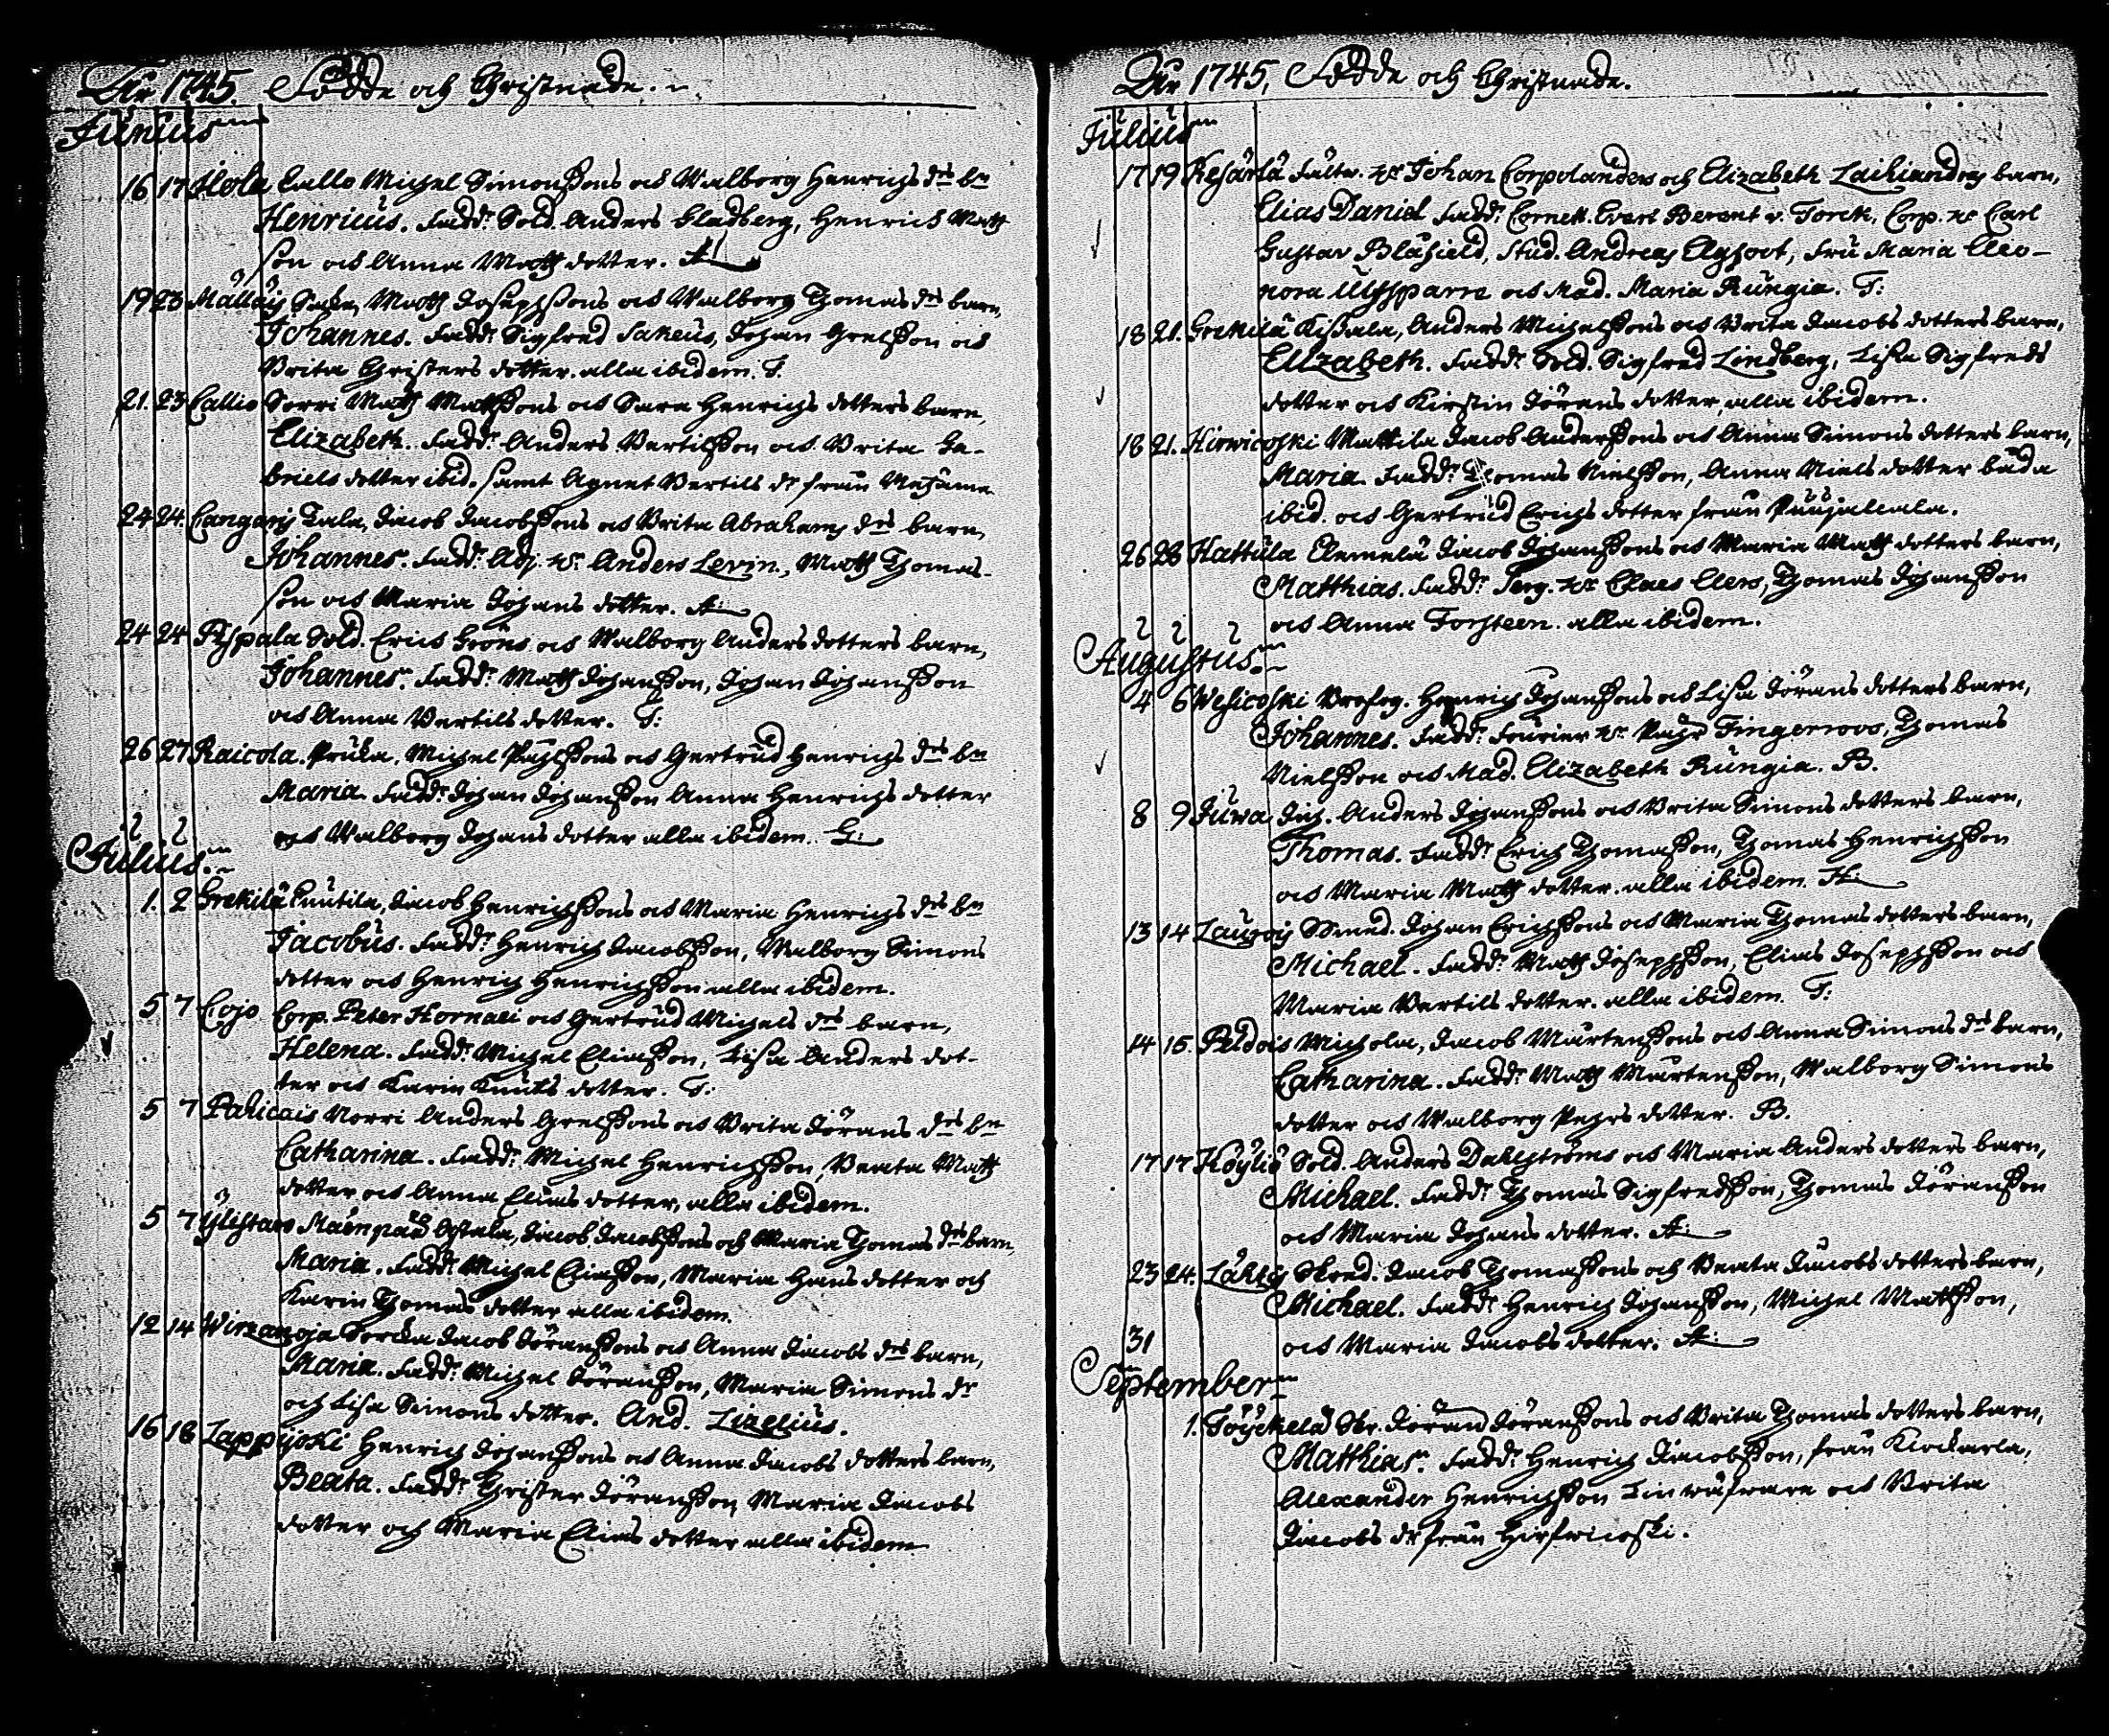 Åhr 1745. Födde och Christnade.
Junius
16 17 Ilola Callo Michel Simonssons och Walborg Henrichs drs bn
Henricus. Fadd: Sold. Anders Gladberg, Henrich Matts
son och Anna Matts dotter. A
19 23 Mällöis Matts Josephssons och Walborg Thomas drs barn,
Johannes. Fadd: Sigfred Sakeus, Johan Grelsson och
Brita Christers dotter. alla ibidem. T.
21. 23 Callio Sorri Matts Mattssons och Sara Henrichs dotters barn,
Elizabeth. Fadd: Anders Bertilsson och Brita Ga-
briels dotter ibid. samt Agnet Bertils dr från
24 24. Cangaris Tala, Jacob Jacobssons och Brita Abrahams drs barn,
Johannes. Fadd: Adj. Hr. Anders Levin, Matts Thomas-
son och Maria Johans dotter. A:
24 24 Pyspala Sold. Erich Gröns och Walborg Anders dotters barn,
Johannes. Fadd: Matts Johansson, Johan Johansson
och Anna Bertils dotter. T:
26 27 Raicola. Prusa, Michel Påhlssons och Gertrud Henrichs drs bn
Maria. Fadd: Johan Johansson Anna Henrichs dotter
och Walborg Johans dotter alla ibidem. G:
Julius.
1. 2 Grekilä Cuutila, Jacob Henrichssons och Maria Henrichs drs bn
Jacobus. Fadd: Henrich Jacobsson, Walborg Simons
dotter och Henrich Henrichsson alla ibidem.
5 7 Cojo Corp. Peter Hornaei och Gertrud Michels drs barn,
Helena. Fadd: Michel Eliasson, Lisa Anders dot-
ter och Karin Knuts dotter. T:
5 7 Pahicais Norri Anders Grelssons och Brita Jörans drs bn
Catharina. Fadd: Michel Henrichsson, Beata Matts
dotter och Anna Elias dotter, alla ibidem.
5 7 Ylistaro Mäenpää Astala, Jacob Jacobssons och Maria Thomas drs barn,
Maria. Fadd: Michel Eliasson, Maria Hans dotter och
Karin Thomas dotter alla ibidem.
12 14 Wirzanoja Sorcka Jacob Jöranssons och Anna Jacobs drs barn,
Maria. Fadd: Michel Jöransson, Maria Simons dr
och Lisa Simons dotter. And. Lizelius.
16 18 Lappijoki Henrich Johanssons och Anna Jacobs dotters barn,
Beata. Fadd: Christer Jöransson, Maria Jacobs
dotter och Maria Elias dotter alla ibidem
Åhr 1745, Födde och Christnade.
Julius
17 19 Kesärlä Fältw. Hr Johan Corpolanders och Elizabeth Laihiandras barn,
Elias Daniel Fadd: Cornett. Evert Berent v. Torck, Corp. Hr Carl
Gustav Blåfield, Stud. Andreas Agshovt, Fru Maria Eleo-
nora Ulfsparre och Mad. Maria Rungia. T:
18 21. Grekilä Kissala, Anders Michelssons och Brita Jacobs dotters barn,
Elizabeth. Fadd: Sold. Sigfred Lindberg, Lisa Sigfreds
dotter och Kirstin Jörans dotter, alla ibidem.
18 21. Hirwicoski Mattila Jacob Anderssons och Anna Simons dotters barn,
Maria. Fadd: Thomas Nielsson, Anna Niels dotter båda
ibid. och Gertrud Erichs dotter från Puujalcala.
26 28 Hattula Elemelä Jacob Johanssons och Maria Matts dotters barn,
Matthias. Fadd: Serg. Hr Claes Elers, Thomas Johansson
och Anna Forsteen. alla ibidem.
Augustus.
4 6 Wesicoski Brofog. Henrich Johanssons och Lisa Jörans dotters barn,
Johannes. Fadd: Fourier Hr. Pehr Fingerroos, Thomas
Nielsson och Mad. Elizabeth Rungia. B.
8 9 Juwa Inh. Anders Johanssons och Brita Simons dotters barn,
Thomas. Fadd: Erich Thomasson, Thomas Henrichsson
och Maria Matts dotter. alla ibidem. A:
13 14 Laurois Smed. Johan Erichssons och Maria Thomas dotters barn,
Michael. Fadd: Matts Josephsson, Elias Josephsson och
Maria Bertils dotter. alla ibidem. T:
14 15. Peldois Michola, Jacob Mårtenssons och Anna Simons drs barn,
Catharina. Fadd: Matts Mårtensson, Walborg Simons
dotter och Walborg Pehrs dotter. B.
17 17 Höyliö Sold. Anders Dahlströms och Maria Anders dotters barn,
Michael. Fadd: Thomas Sigfredsson, Thomas Jöransson
och Maria Johans dotter. A:
23 24. Lähtis Skrd. Jacob Thomassons och Beata Jacobs dotters barn,
Michael. Fadd: Henrich Johansson, Michel Mattsson,
31 och Maria Jacobs dotter. A:
September
1. Töyckelä Skr. Jöran Jöranssons och Brita Thomas dotters barn,
Matthias. Fadd: Henrich Jacobsson, från Kiockarla,
Alexander Henrichsson Linwäfware och Brita
Jacobs dr från Hirfwicoski.